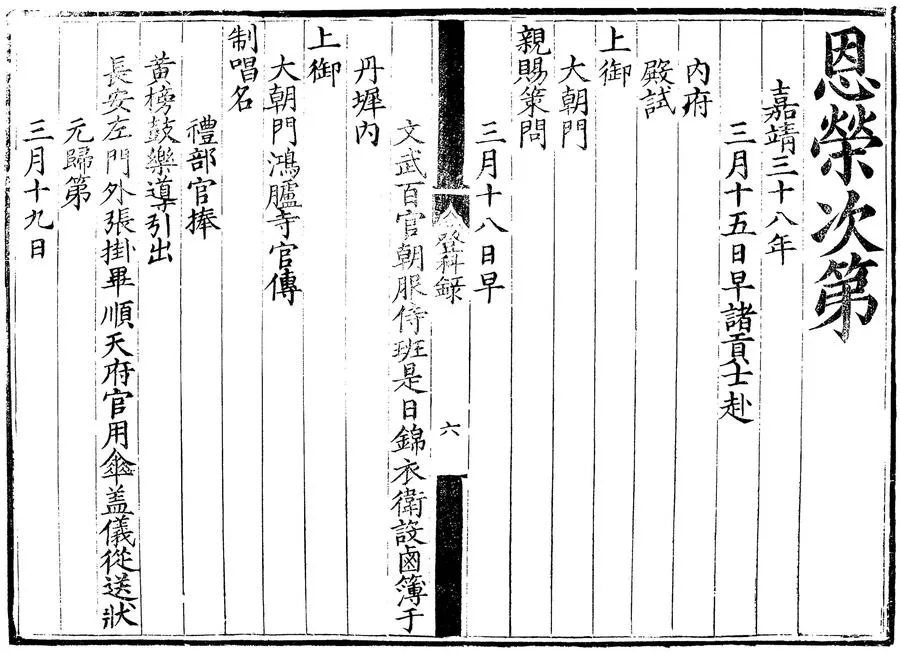 恩榮次第
嘉靖三十八年
三月十五日早諸貢士赴
內府
殿試
上御
大朝門
親賜策問
三月十八日早
登科錄
六
文武百官朝服侍班是日錦衣衛設鹵簿于
丹墀內
上御
大朝門鴻臚寺官傳
制唱名
禮部官捧
黃榜鼓樂導引出
長安左門外張掛畢順天府官用傘盖儀從送狀
元歸第
三月十九日